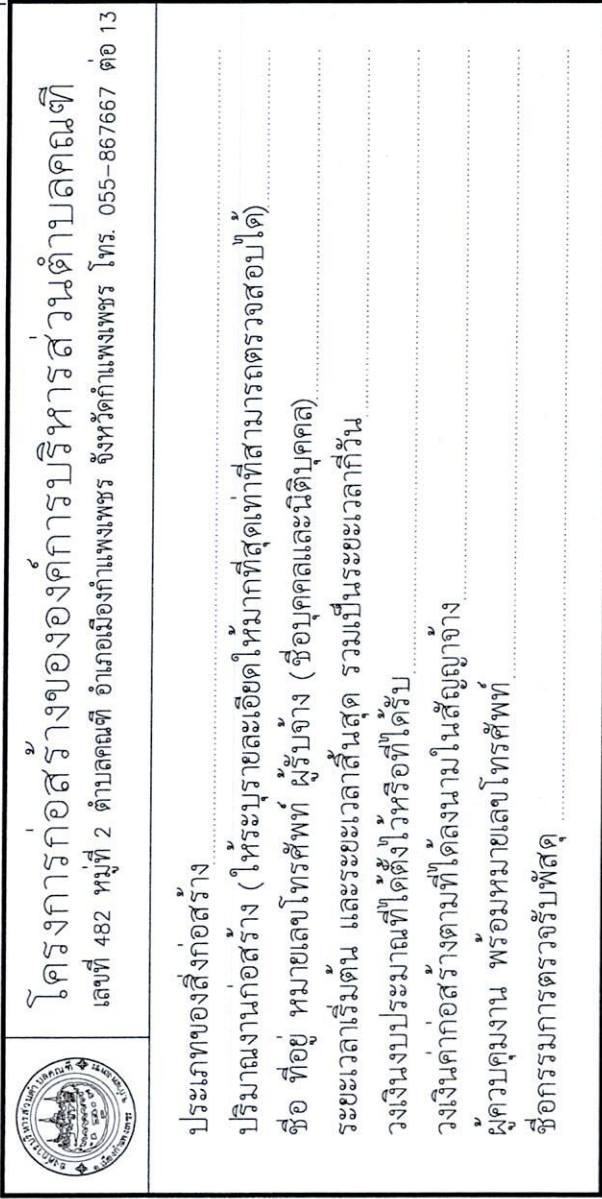 โครงการก่อสร้างขององค์การบริหารส่วนตำบลคณฑี
เลขที่ 482 หมู่ที่ 2 ตำบลคณฑี อำเภอเมืองกำแพงเพชร จังหวัดกำแพงเพชร โทร. 055-867667 ต่อ 13
ประเภทของสิ่งก่อสร้าง
ปริมาณงานก่อสร้าง (ให้ระบุรายละเอียดให้มากที่สุดเท่าที่สามารถตรวจสอบได้)
ชื่อ ที่อยู่ หมายเลขโทรศัพท์ ผู้รับจ้าง (ชื่อบุคคลและนิติบุคคล)
ระยะเวลาเริ่มต้น และระยะเวลาสิ้นสุด รวมเป็นระยะเวลากี่วัน
วงเงินงบประมาณที่ได้ตั้งไว้หรือที่ได้รับ
วงเงินค่าก่อสร้างตามที่ได้ลงนามในสัญญาจ้าง
ผู้ควบคุมงาน พร้อมหมายเลขโทรศัพท์
ชื่อกรรมการตรวจรับพัสดุ